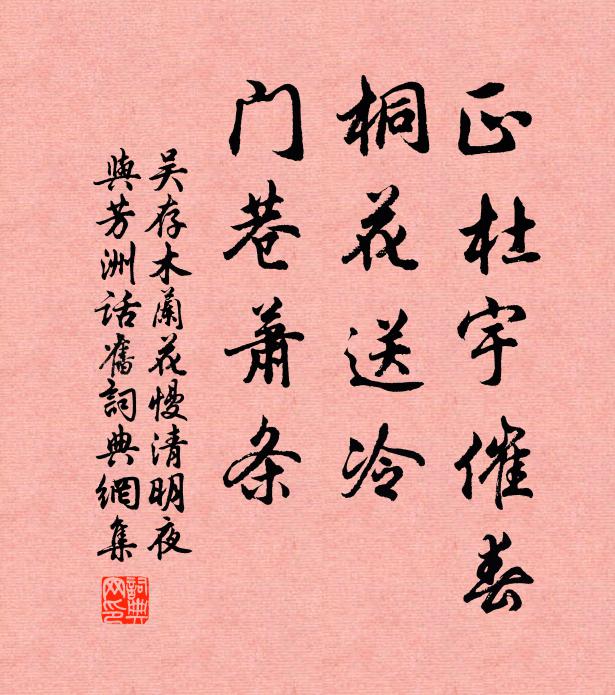 正杜宇催春
桐花送冷
门巷萧条
吴存木蘭花慢清明夜
與芳洲话舊詞典網集
詞典網印